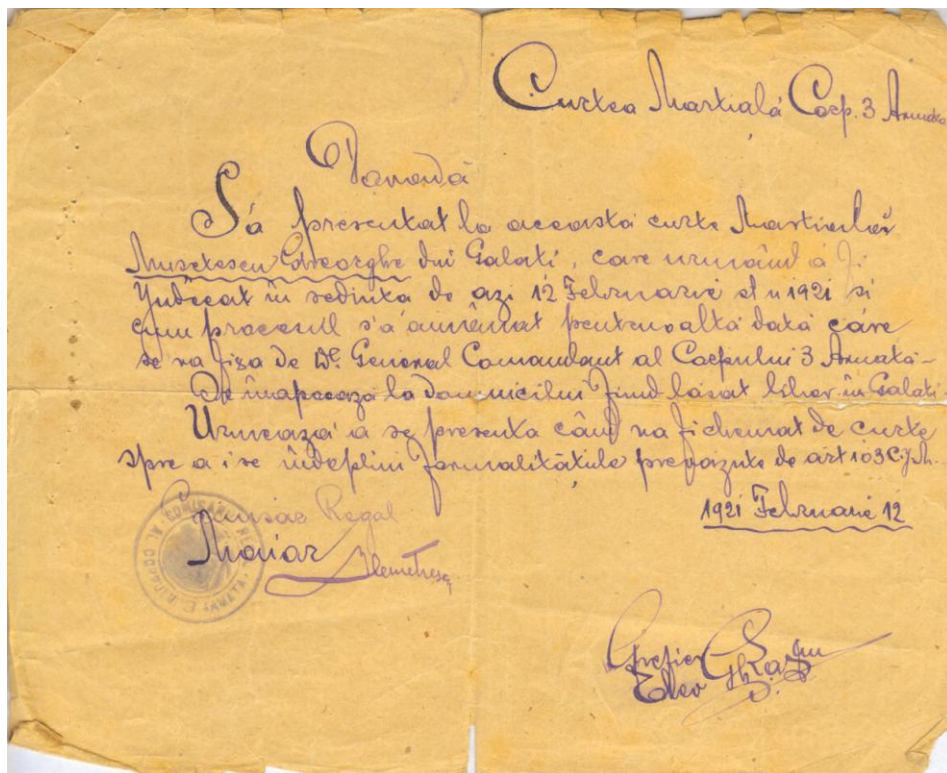 Curtea Martială Corp. 3 Armata
Dovadă
S'a presentat la aceasta curte Martială
Musetescu Gheorghe din Galati, care urmând a fi
Judecat în sedinta de azi 12 Februarie a
1921 si
cum procesul s'a amânat pentru altă dată care
se va fixa de Dl. General Comandant al Corpului 3 Armată -
Se înapoează la domiciliu fiind lăsat liber în Galati
Urmează a se presenta când va fi chemat de curte
spre a i se îndeplini formalitătile prevăzute de art 103 C.J.M.
1921 Februarie 12
Comisar Regal
Maior
Grefier
Elev Gh.